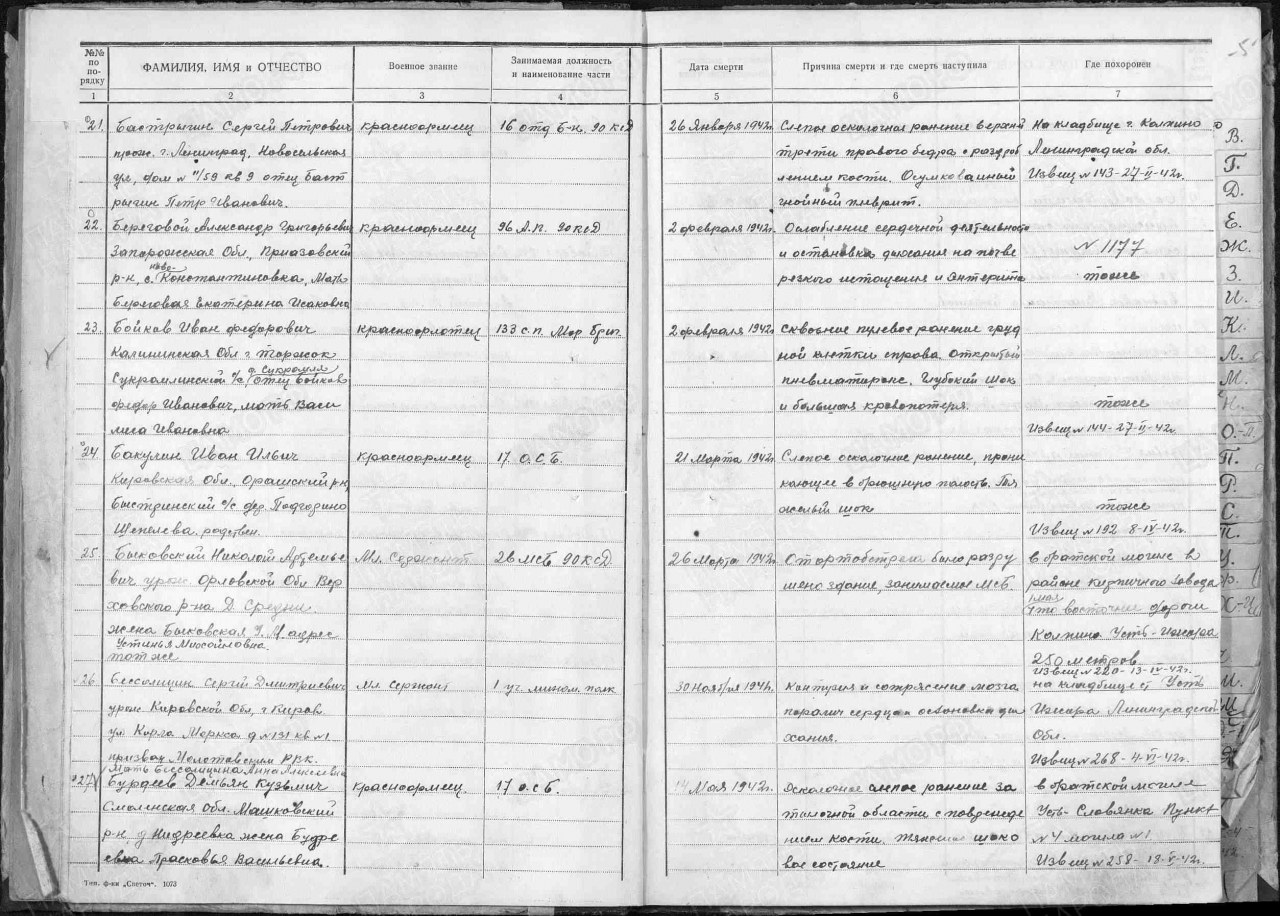 5
№№ по по- рядку
ФАМИЛИЯ, ИМЯ и ОТЧЕСТВО
Военное звание
Занимаемая должность и наименование части
Дата смерти
Причина смерти и где смерть наступила
Где похоронен
1 2 3 4 5 6 7
21. Бастрыгин Сергей Петрович красноармеец 16 отд б-н. 90 ксД 26 Января 1942г. Слепое осколочное ранение верхней На кладбище г. Колпино
прож. г. Ленинград, Новосельская трети правого бедра с раздроб Ленинградской обл.
ул, дом № 11/59 кв 9 отец Баст лением кости. Осумкованный Извещ № 143-27-II-42г.
рыгин Петр Иванович. гнойный плеврит.
22. Береговой Александр Григорьевич красноармеец 96 А.П. 90 ксД 2 февраля 1942г. Ослабление сердечной деятельнос
Запорожская Обл., Приазовский и остановка дыхания на почве № 1177
р-н, с. Ново Константиновка, Мать резкого истощения и энтерита тоже
Береговая Екатерина Исаковна
23. Бойков Иван Федорович краснофлотец 133 с.п. Мор Бриг. 2 февраля 1942г. Сквозное пулевое ранение груд
Калининская Обл г. Торжок ной клетки справа. Открытый
Сукромлинский с/с д. Сукромля отец Бойков пневматоракс. Глубокий шок
Федор Иванович, мать Васи и большая кровопотеря. тоже
лиса Ивановна Извещ № 144-27-II-42г.
24. Бакулин Иван Ильич Красноармеец 17 О.С.Б. 21 Марта 1942г Слепое осколочное ранение, прони
Кировская Обл., р-н, кающее в брюшную полость. Тя
Быстринский с/с дер. Подгорино желый шок тоже
Шепелева. родствен. Извещ № 192 8-IV-42г.
25. Быковский Николай Артемье Мл. Сержант 26 мсб 90 ксД 26 Марта 1942г. От артобстрела было разру в братской могиле в
вич урож. Орловской Обл. Вер шено здание, занимаемое МСБ. районе кирпичного завода
ховского р-на Д. Средни восточнее дороги
жена Быковская У. М. адрес Колпино Усть-Ижора
Устинья Михайловна.
тот же 250 метров
Извещ № 220-13-IV-42г.
26. Бессолицин Сергей Дмитриевич Мл Сержант 1 уг. мином. полк 30 Ноября 1941г. Контузия и сотрясение мозга на кладбище ст Усть
урож. Кировской Обл, г Киров паралич сердца и остановка ды Ижора Ленинградской
ул Карла Маркса д №131 кв №1 хания. Обл.
призван Молотовским РВК. Извещ № 268-4-VI-42г.
Мать Бессолицина Анна Алексеевна
27. Бурдеев Демьян Кузьмич Красноармеец. 17 осб. 14 Мая 1942г. Осколочное слепое ранение за в братской могиле
Смоленская Обл. Машковский тылочной области с поврежде Усть-Славянка Пункт
р-н, д Андреевка жена Бурде нием кости. Тяжелое шоко № 4 могила №1.
ева Прасковья Васильевна. вое состояние Извещ № 258-18-VI-42г.
Тип. ф-ки „Светоч". 1073
В.
Г.
Д.
Е.
Ж.
З.
И.
К.
Л.
М.
Н.
О.-П.
П.
Р.
С.
Т.
У.
Ф.